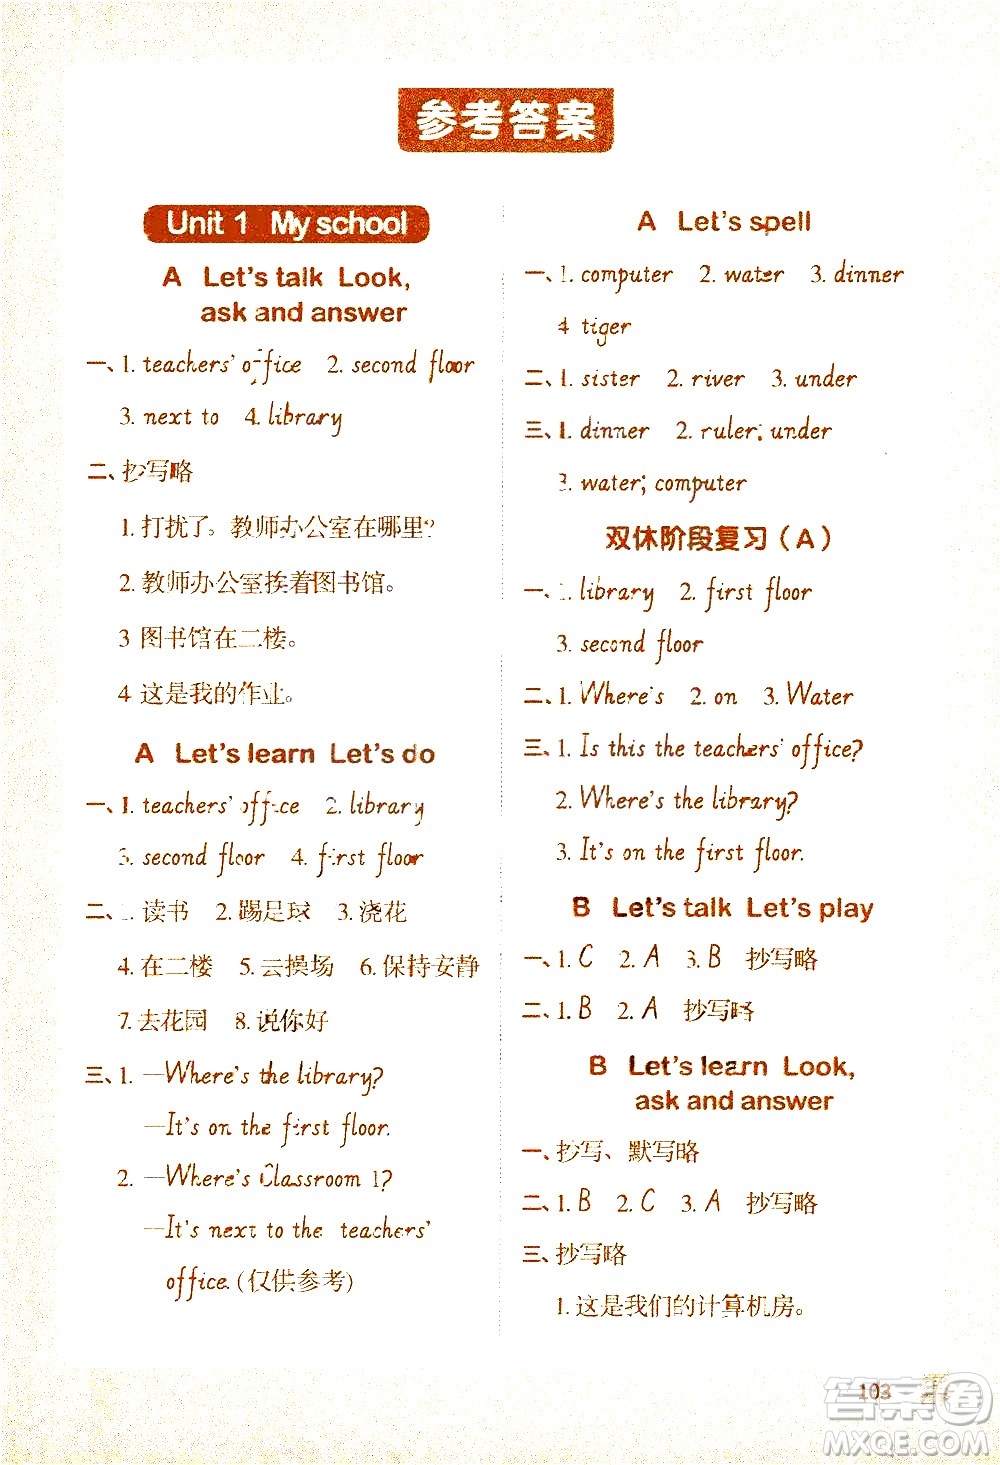 参考答案
Unit 1 My school
A Let's talk Look,
ask and answer
一、1. teachers' office 2. second floor
3. next to 4. library
二、抄写略
1. 打扰了。教师办公室在哪里?
2. 教师办公室挨着图书馆。
3 图书馆在二楼。
4 这是我的作业。
A Let's learn Let's do
一、1. teachers' office 2. library
3. second floor 4. first floor
二、1. 读书 2. 踢足球 3. 浇花
4. 在二楼 5. 去操场 6. 保持安静
7. 去花园 8. 说你好
三、1. —Where's the library?
—It's on the first floor.
2. —Where's Classroom 1?
—It's next to the teachers'
office. (仅供参考)
A Let's spell
一、1. computer 2. water 3. dinner
4 tiger
二、1. sister 2. river 3. under
三、1. dinner 2. ruler; under
3. water; computer
双休阶段复习(A)
一、1. library 2. first floor
3. second floor
二、1. Where's 2. on 3. Water
三、1. Is this the teachers' office?
2. Where's the library?
3. It's on the first floor.
B Let's talk Let's play
一、1. C 2. A 3. B 抄写略
二、1. B 2. A 抄写略
B Let's learn Look,
ask and answer
一、抄写、默写略
二、1. B 2. C 3. A 抄写略
三、抄写略
1. 这是我们的计算机房。
103
答案圈
MXQE.COM